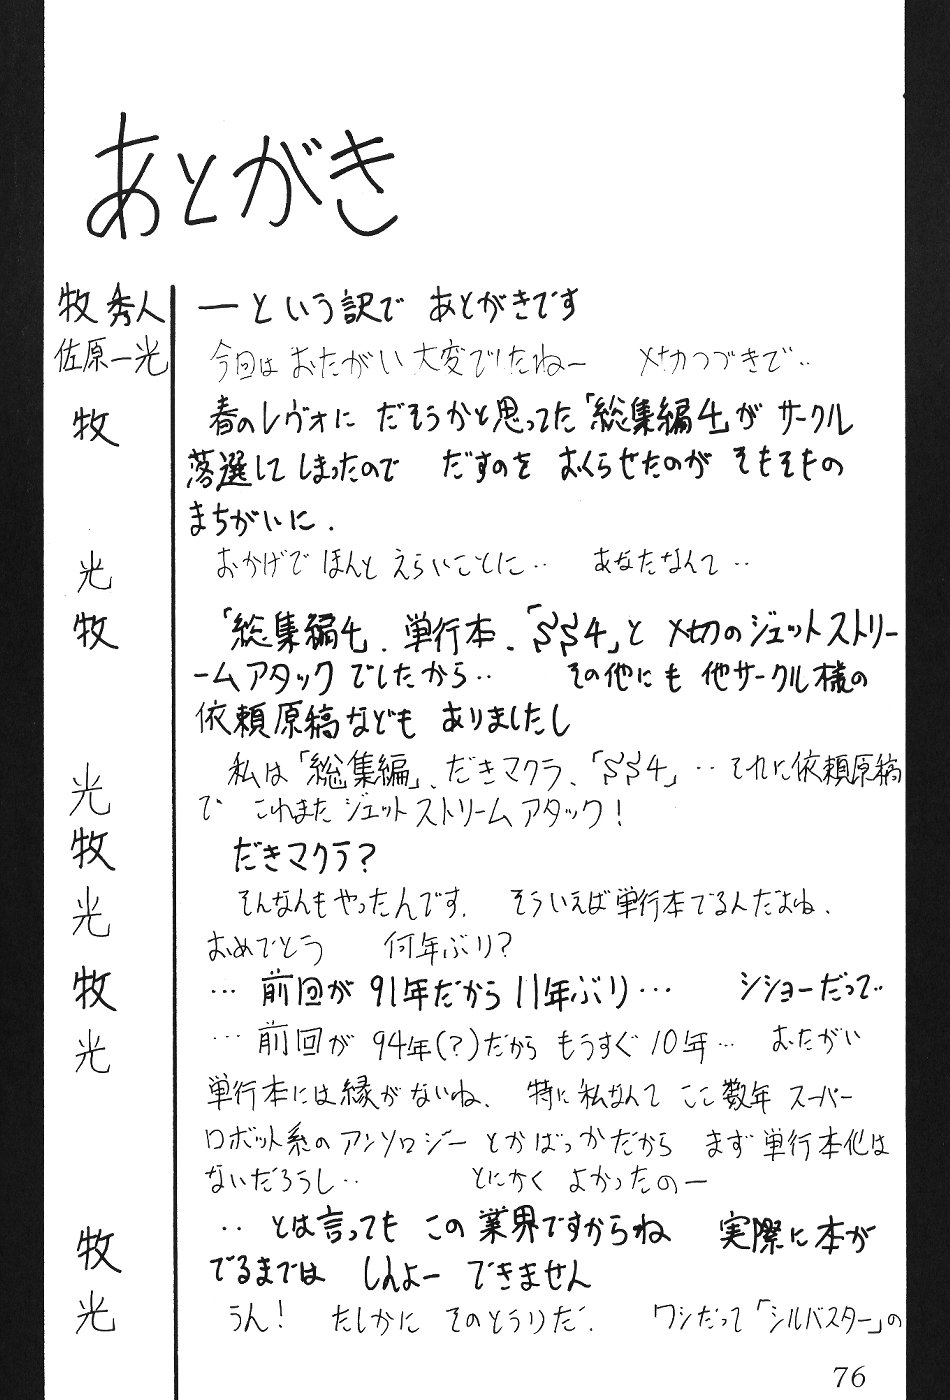 あとがき
牧 秀人 ―という訳で あとがきです
佐原一光 今回は おたがい 大変でしたねー 〆切つづきで‥
牧 春のレヴォに だそうかと思ってた「総集編4」が サークル
落選して しまったので だすのを おくらせたのが そもそもの
まちがいに.
光 おかげで ほんと えらいことに‥ あなたなんて‥
牧 「総集編4」、単行本、「
4」と 〆切のジェットストリー
ームアタックでしたから‥ その他にも 他サークル様の
依頼原稿なども ありましたし
光 私は「総集編」、だきマクラ、「
4」‥それに依頼原稿
で これまた ジェットストリームアタック!
牧 だきマクラ?
光 そんなんもやったんです. そういえば単行本でるんだよね、
おめでとう 何年ぶり?
牧 …前回が 91年だから 11年ぶり… シショーだって
光 …前回が 94年(?)だから もうすぐ 10年… おたがい
単行本には縁がないね、 特に私なんて ここ数年 スーパー
ロボット系のアンソロジー とかばっかだから まず単行本化は
ないだろうし‥ とにかく よかったのー
牧 ‥とは言っても この業界ですからね 実際に本が
でるまでは しんよー できません
光 うん! たしかに そのとうりだ. ワシだって「シルバスター」の
76